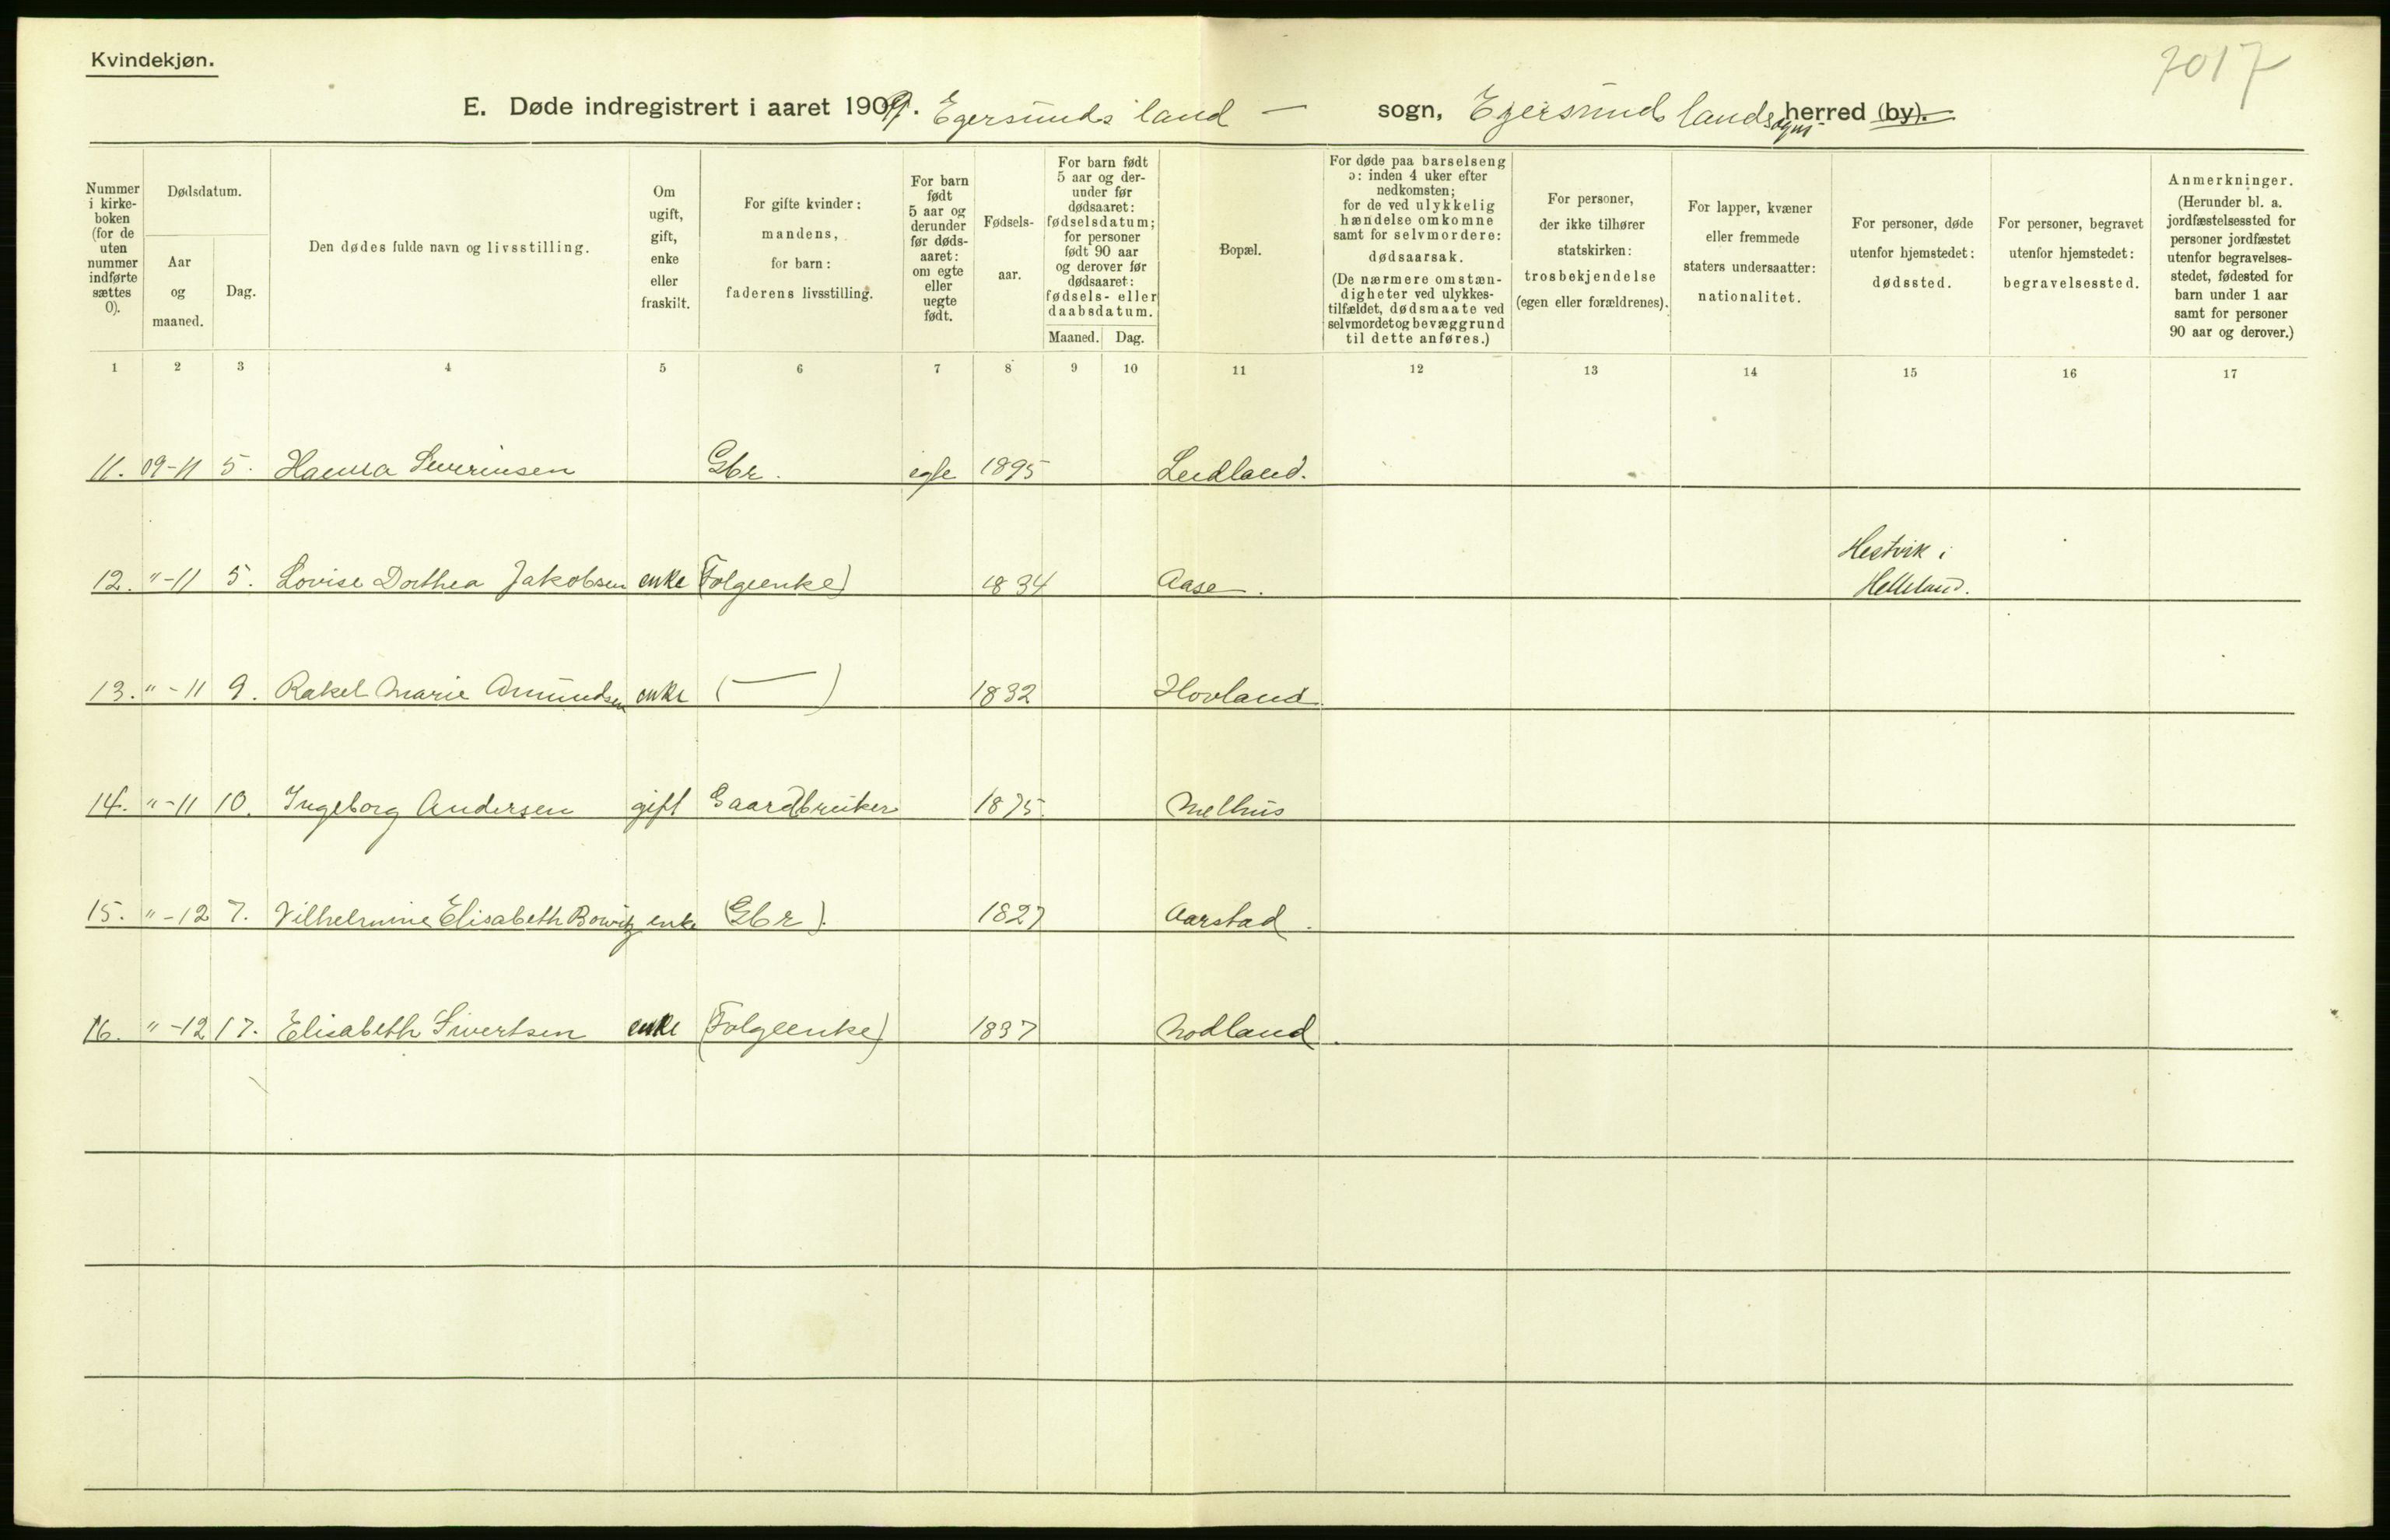 Kvindekjøn.
7017
E. Døde indregistrert i aaret 1909. Egersunds land — sogn, Egersunds landsogns herred (by).
Nummer i kirkeboken (for de uten nummer indførte sættes 0).
Dødsdatum.
Aar og maaned.
Dag.
Den dødes fulde navn og livsstilling.
Om ugift, gift, enke eller fraskilt.
For gifte kvinder: mandens, for barn: faderens livsstilling.
For barn født 5 aar og derunder før dødsaaret: om egte eller uegte født.
Fødselsaar.
For barn født 5 aar og derunder før dødsaaret: fødselsdatum; for personer født 90 aar og derover før dødsaaret: fødsels- eller daabsdatum.
Maaned. Dag.
Bopæl.
For døde paa barselseng ɔ: inden 4 uker efter nedkomsten; for de ved ulykkelig hændelse omkomne samt for selvmordere: dødsaarsak. (De nærmere omstændigheter ved ulykkestilfældet, dødsmaate ved selvmordet og bevæggrund til dette anføres.)
For personer, der ikke tilhører statskirken: trosbekjendelse (egen eller forældrenes).
For lapper, kvæner eller fremmede staters undersaatter: nationalitet.
For personer, døde utenfor hjemstedet: dødssted.
For personer, begravet utenfor hjemstedet: begravelsessted.
Anmerkninger. (Herunder bl. a. jordfæstelsessted for personer jordfæstet utenfor begravelsesstedet, fødested for barn under 1 aar samt for personer 90 aar og derover.)
1 2 3 4 5 6 7 8 9 10 11 12 13 14 15 16 17
11. 09-11 5. Hanna Severinsen Gbr. egte 1895 Leidland.
12. "-11 5. Lovise Dorthea Jakobsen enke (Folgeenke) 1834 Aase. Hestvik i Helleland.
13. "-11 9. Rakel Marie Amundsen enke (—) 1832 Hovland.
14. "-11 10. Ingeborg Andersen gift Gaardbruker 1875. Melhus
15. "-12 7. Vilhelmine Elisabeth Bowitz enke (Gbr). 1827 Aarstad.
16. "-12 17. Elisabeth Sivertsen enke (Folgeenke) 1837 Nodland.